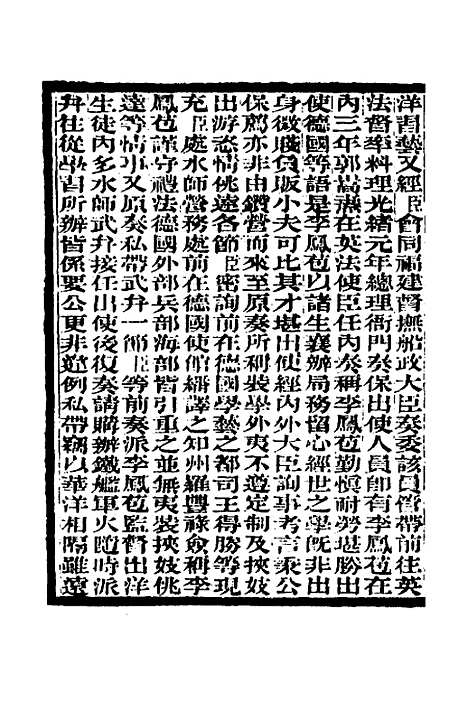 洋習藝又經臣會同福建督撫船政大臣奏委該員管帶前往英
法督率料理光緒元年總理衙門奏保出使人員即有李鳳苞在
內三年郭嵩燾在英法使臣任內奏稱李鳳苞勤慎耐勞堪勝出
使德國等語是李鳳苞以諸生襄辦局務留心經世之學旣非出
身微賤負販小夫可比其才堪出使經內外大臣詢事考言秉公
保薦亦非由鑽營而來至原奏所稱裝學外夷不遵定制及挾妓
出游恣情佻達各節臣密詢前在德國學藝之都司王得勝等現
充臣處水師營務處前在德國使館繙譯之知州羅豐祿僉稱李
鳳苞謹守禮法德國外部兵部海部皆引重之並無夷裝挾妓佻
達等情事又原奏私帶武弁一節臣等前奏派李鳳苞監督出洋
生徒內多水師武弁接任出使後復奏請購辦鐵艦軍火隨時派
弁往從學習所辦皆係要公更非違例私帶竊以華洋相隔雖遠